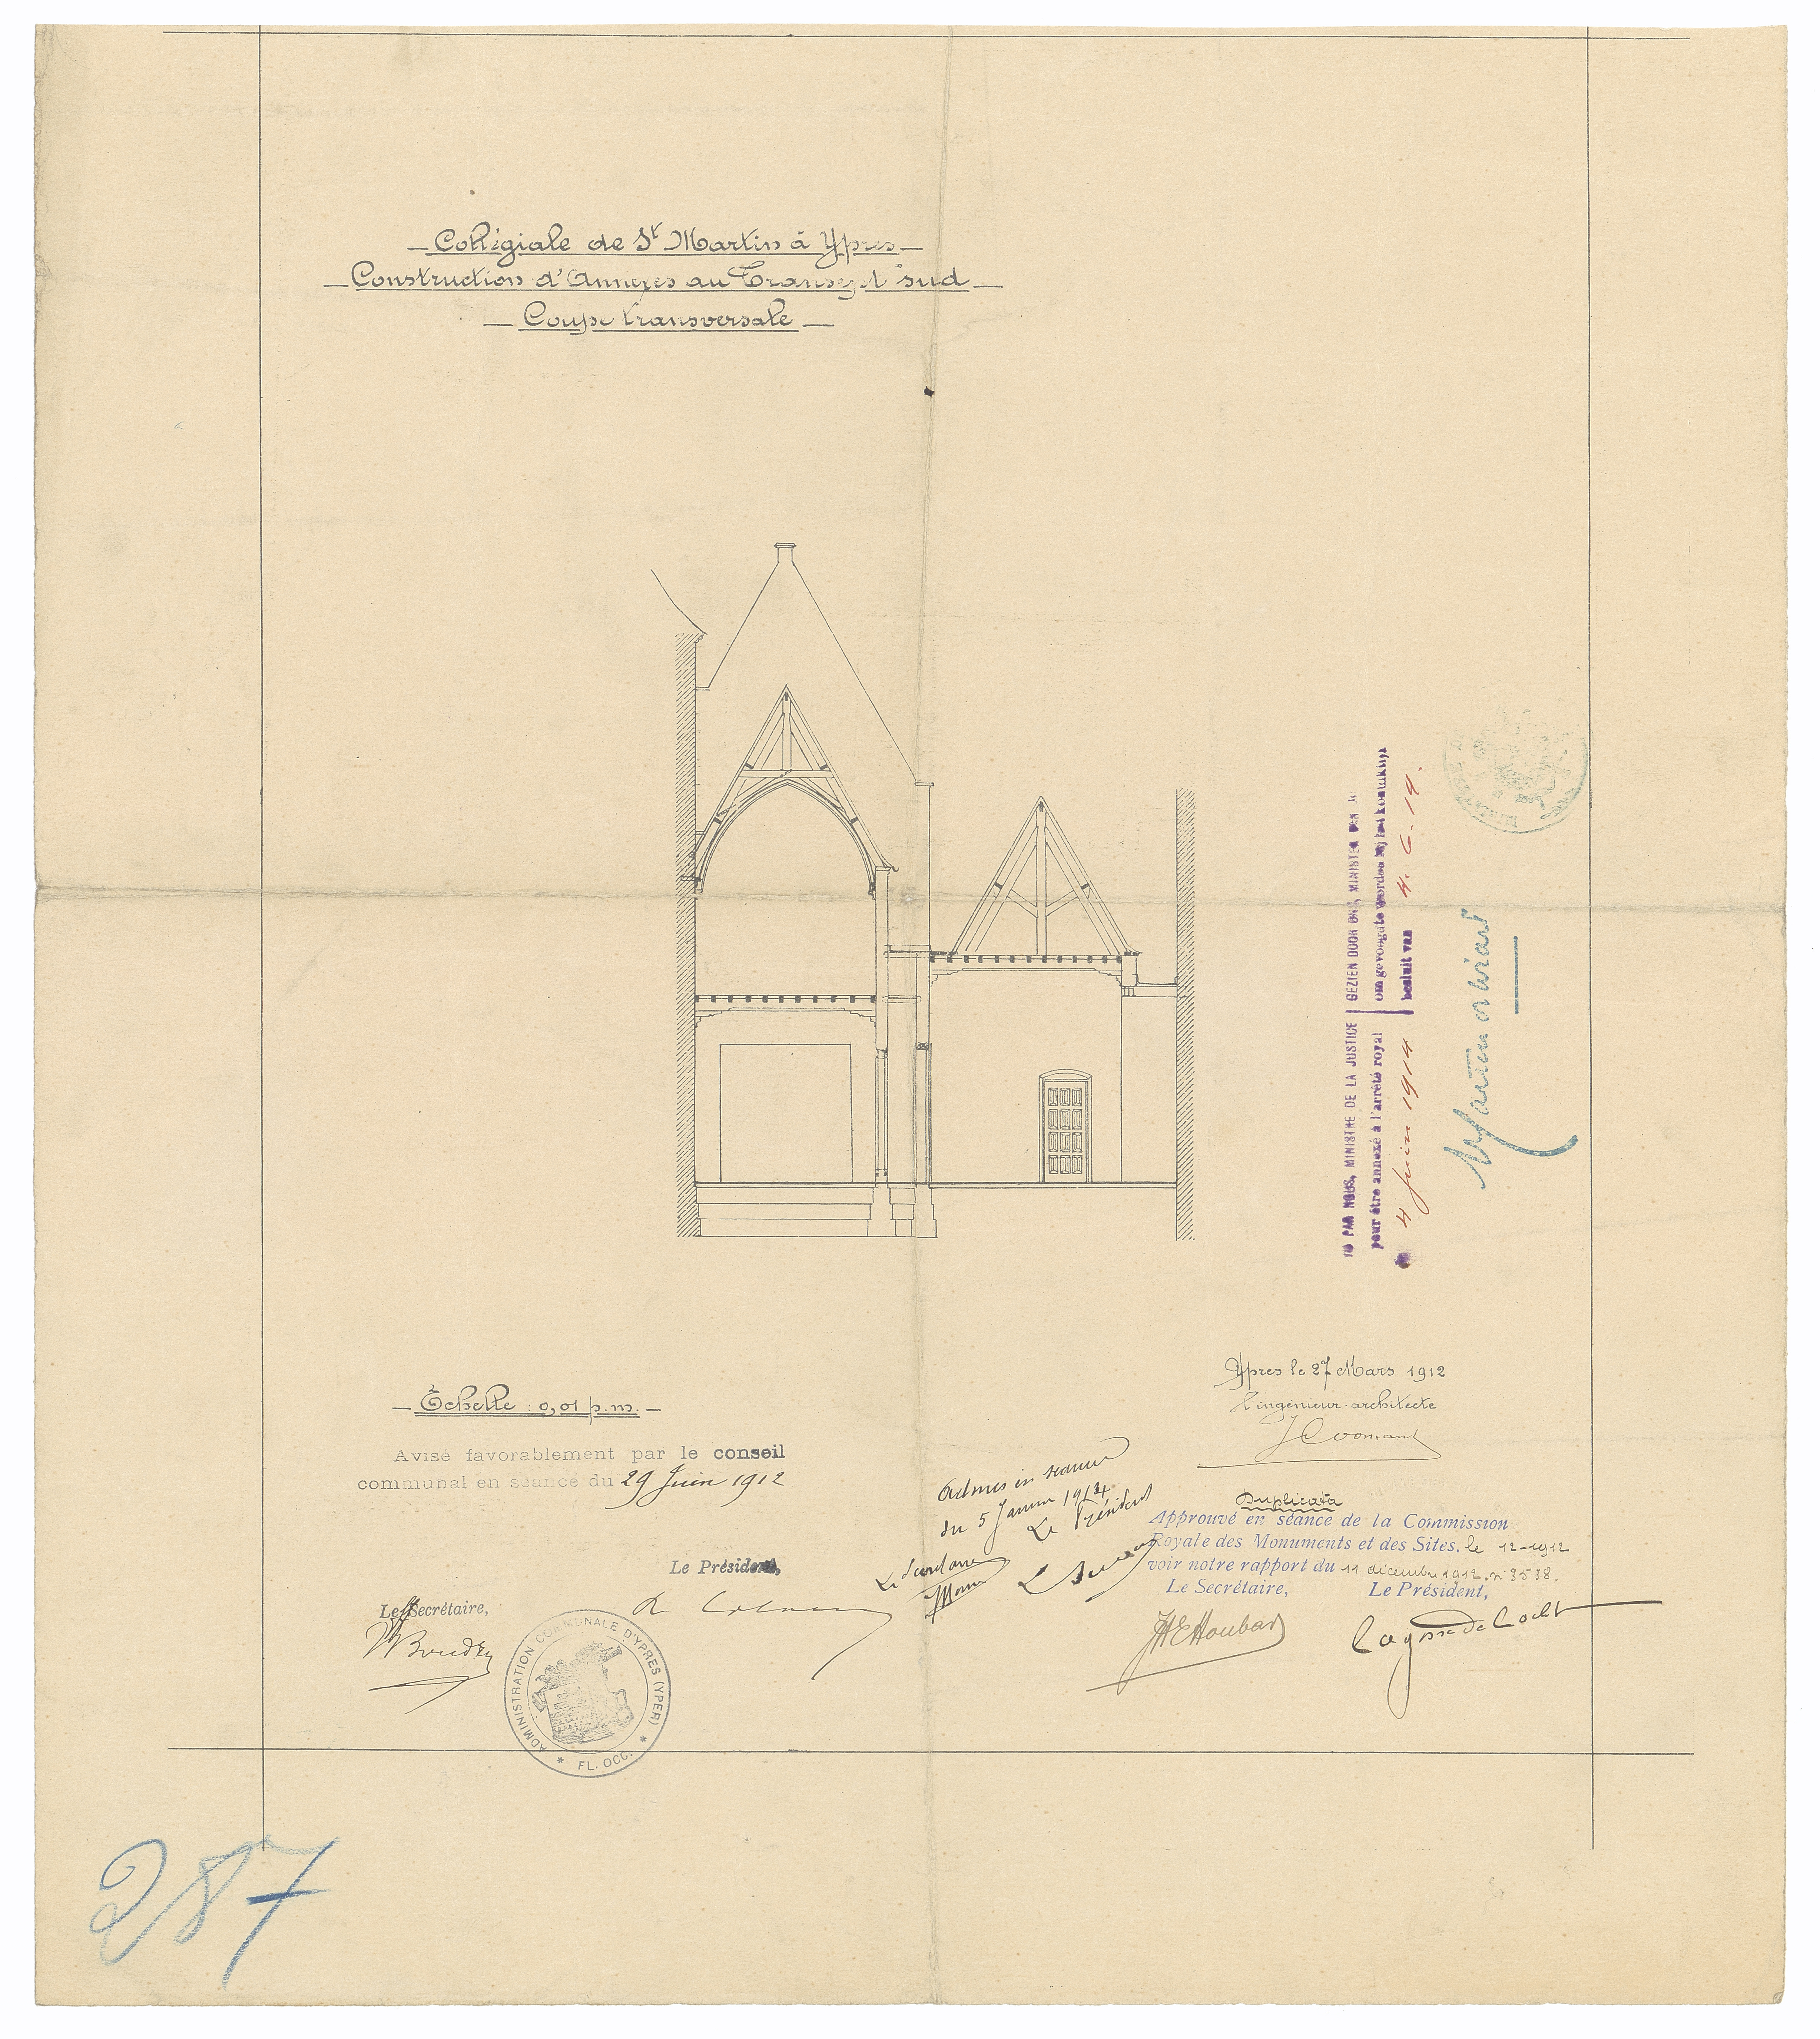 Collégiale de St Martin à Ypres
Construction d'Annexes au Transept sud
Coupe transversale
VU PAR NOUS, MINISTRE DE LA JUSTICE
pour être annexé à l'arrêté royal
4 Juin 1914
GEZIEN DOOR ONS, MINISTER VAN
om gevoegd te worden bij het koninklijk
besluit van 4. 6. 14.
Ypres le 27 Mars 1912
l'ingénieur-architecte
J Coomans
Échelle : 0,01 p.m.
Avisé favorablement par le conseil
communal en séance du 29 Juin 1912
Le Président,
Le Secrétaire,
ADMINISTRATION COMMUNALE D'YPRES (YPER)
* FL. OCC. *
Admis en séance
du 5 Janvier 1914
Le Président
Le Secrétaire
Duplicata
Approuvé en séance de la Commission
Royale des Monuments et des Sites, le 12-1912
voir notre rapport du 11 décembre 1912, n° 3538.
Le Secrétaire,
Le Président,
287